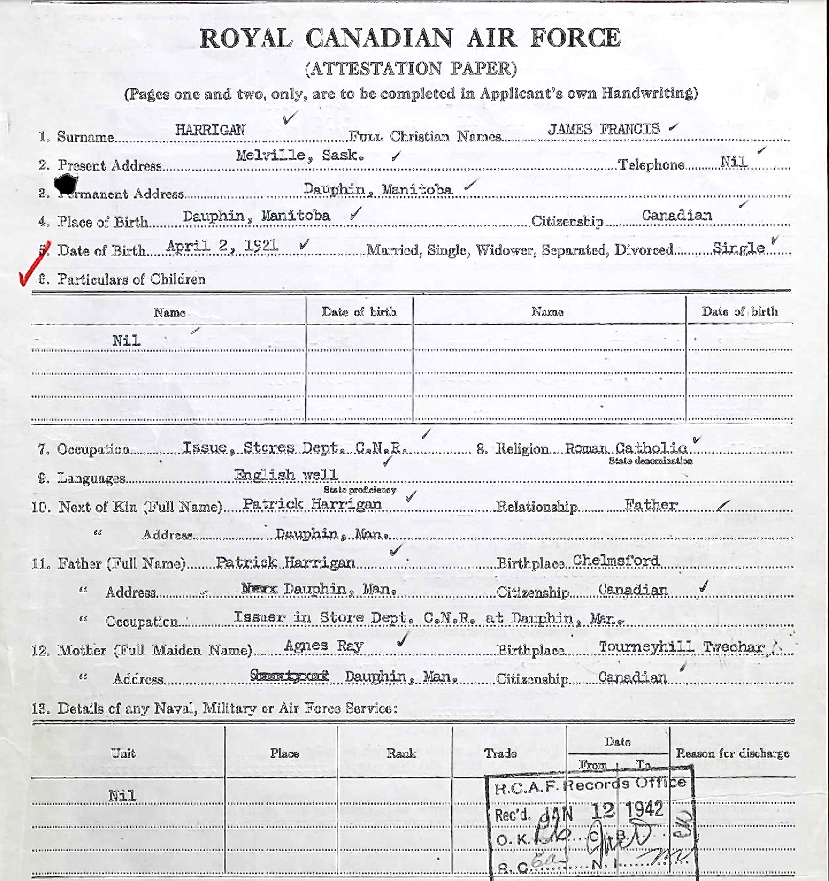 ROYAL CANADIAN AIR FORCE
(ATTESTATION PAPER)
(Pages one and two, only, are to be completed in Applicant's own Handwriting)
1. Surname HARRIGAN Full Christian Names JAMES FRANCIS
2. Present Address Melville, Sask. Telephone Nil
3. Permanent Address Dauphin, Manitoba
4. Place of Birth Dauphin, Manitoba Citizenship Canadian
5. Date of Birth April 2, 1921 Married, Single, Widower, Separated, Divorced Single
6. Particulars of Children
Name Date of birth Name Date of birth
Nil
7. Occupation Issue, Stores Dept. C.N.R. 8. Religion Roman Catholic
State denomination
9. Languages English well
State proficiency
10. Next of Kin (Full Name) Patrick Harrigan Relationship Father
" Address Dauphin, Man.
11. Father (Full Name) Patrick Harrigan Birthplace Chelmsford
" Address Dauphin, Man. Citizenship Canadian
" Occupation Issuer in Store Dept. C.N.R. at Dauphin, Man.
12. Mother (Full Maiden Name) Agnes Ray Birthplace Tourneyhill Twechar
" Address Dauphin, Man. Citizenship Canadian
13. Details of any Naval, Military or Air Force Service:
Unit Place Rank Trade Date Reason for discharge
From To
Nil
R.C.A.F. Records Office
Rec'd. JAN 12 1942
O.K. C B
R.C. N.I.